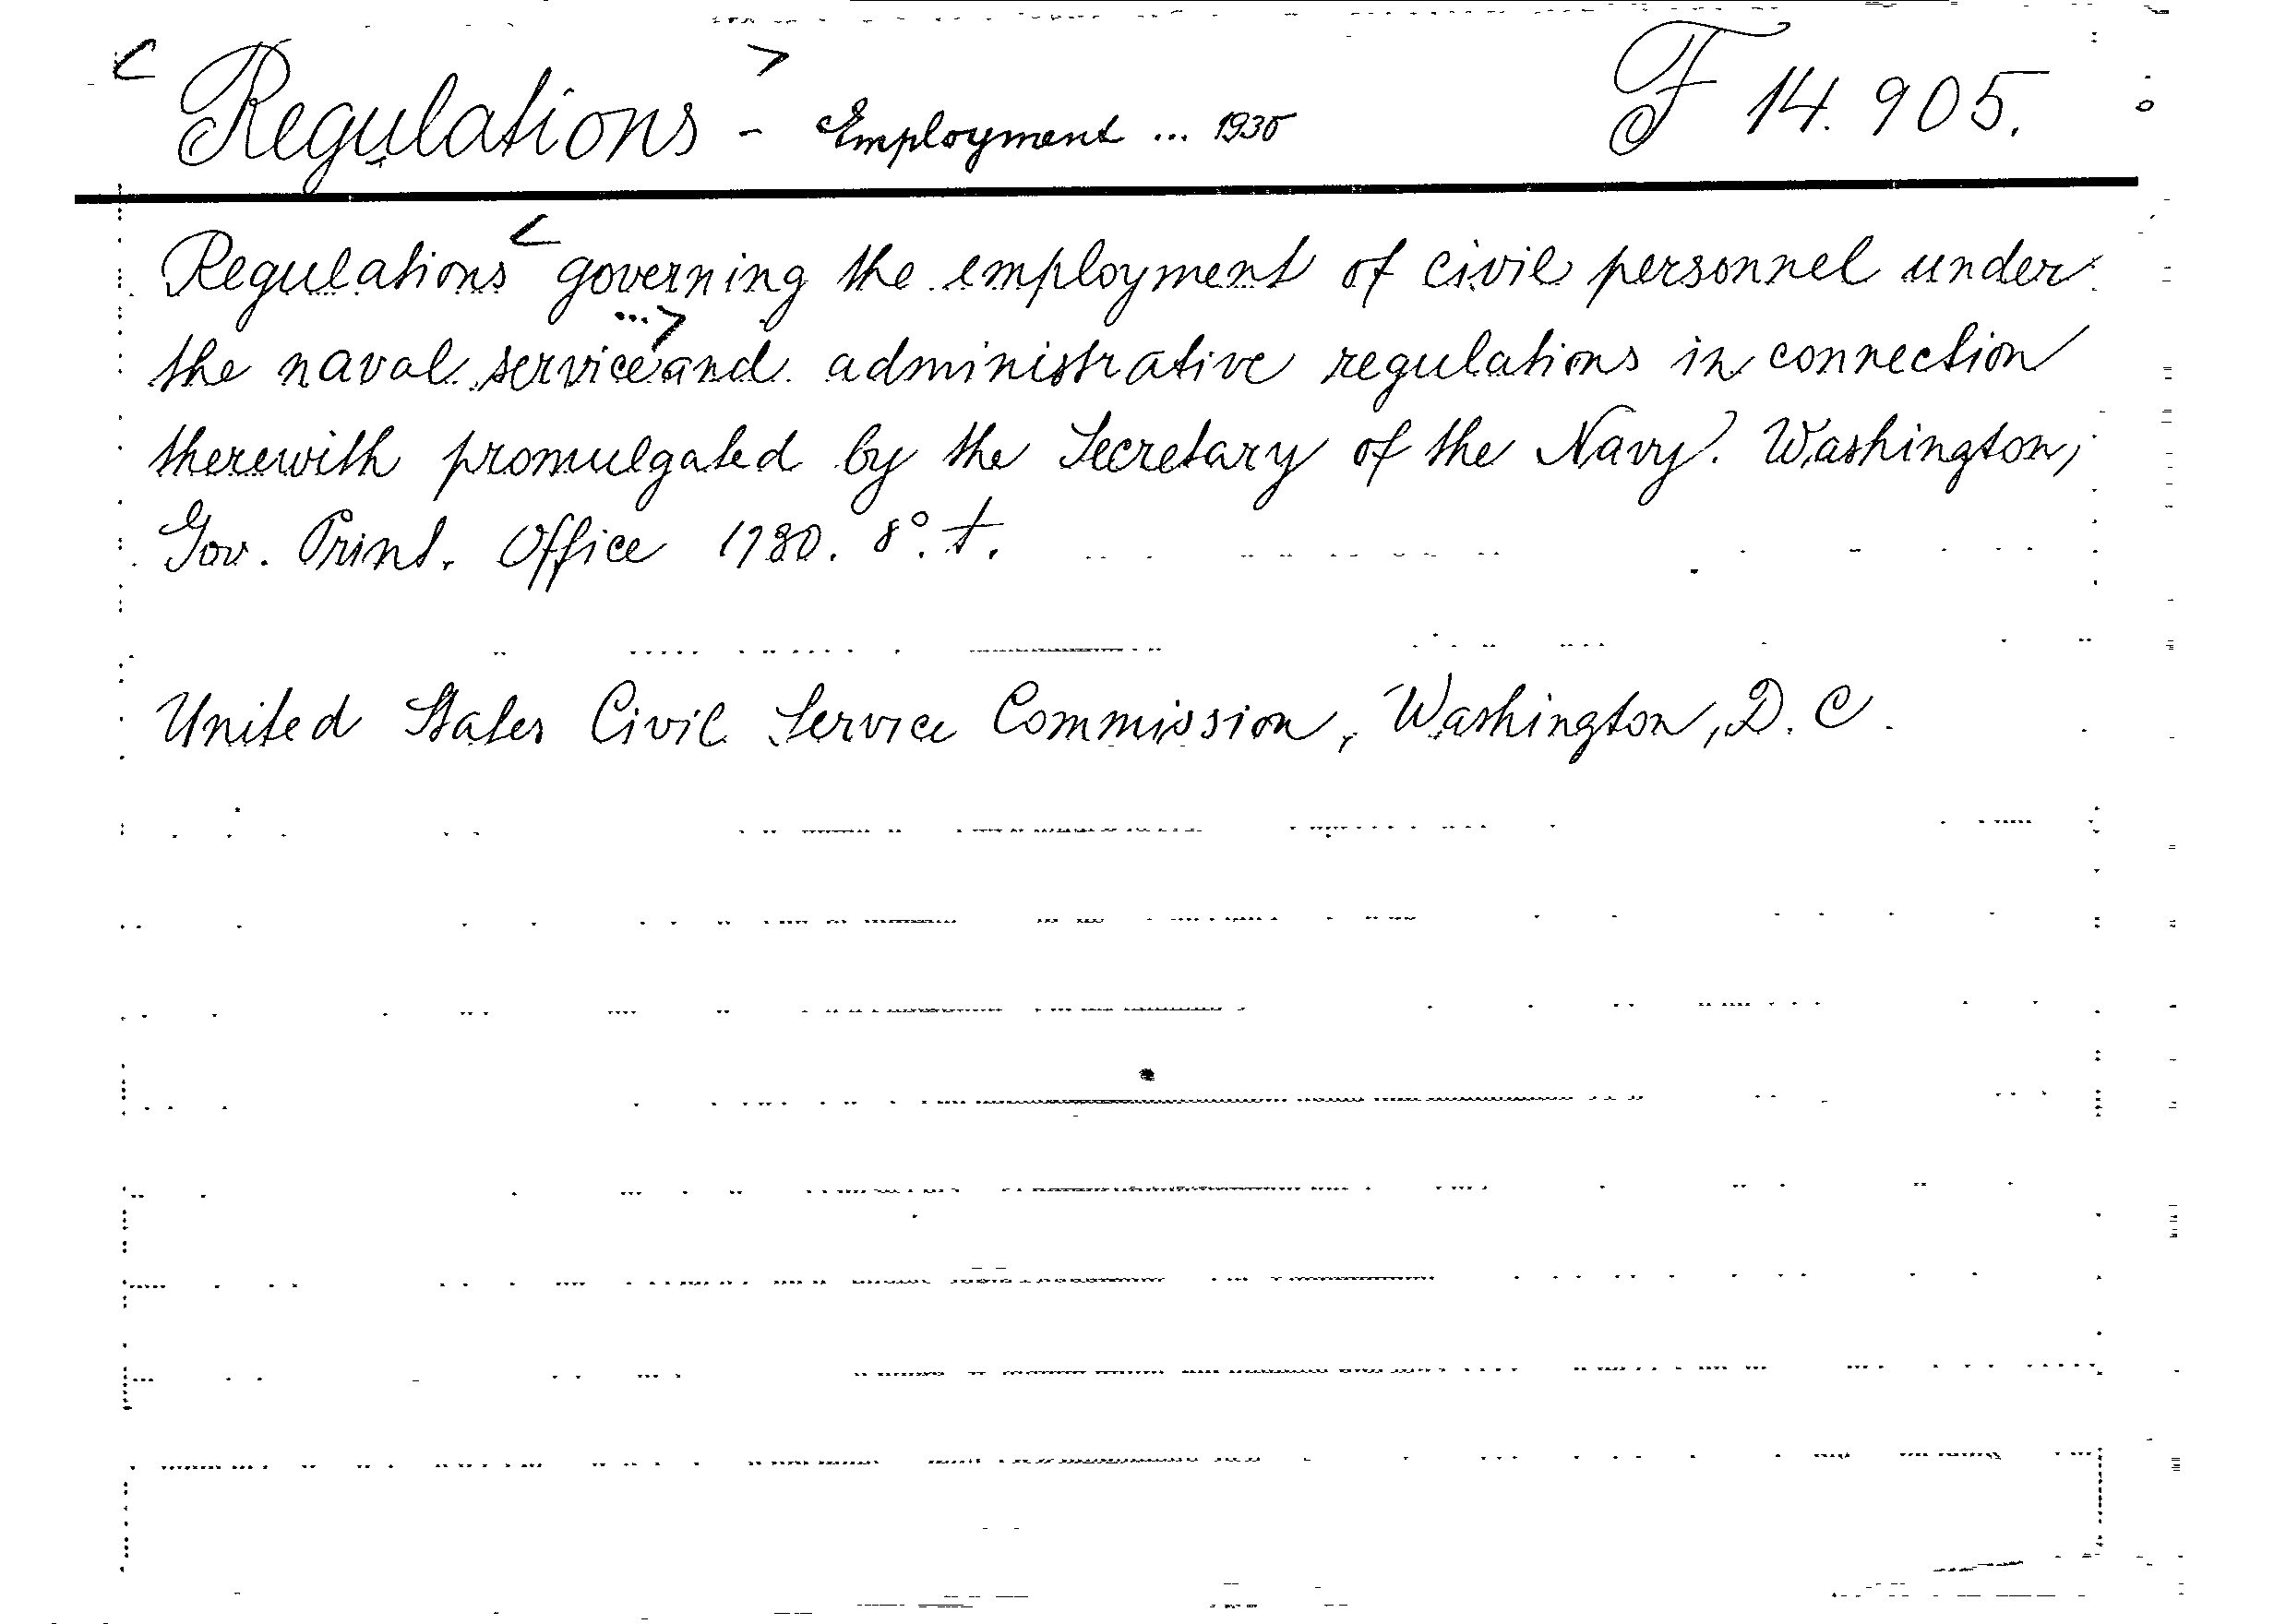 < Regulations > - Employment ... 1930 F 14.905.
Regulations < governing the employment of civil personnel under
the naval service ...> and administrative regulations in connection
therewith promulgated by the Secretary of the Navy. Washington,
Gov. Print. Office 1930. 8°. t.
United States Civil Service Commission, Washington, D.C.